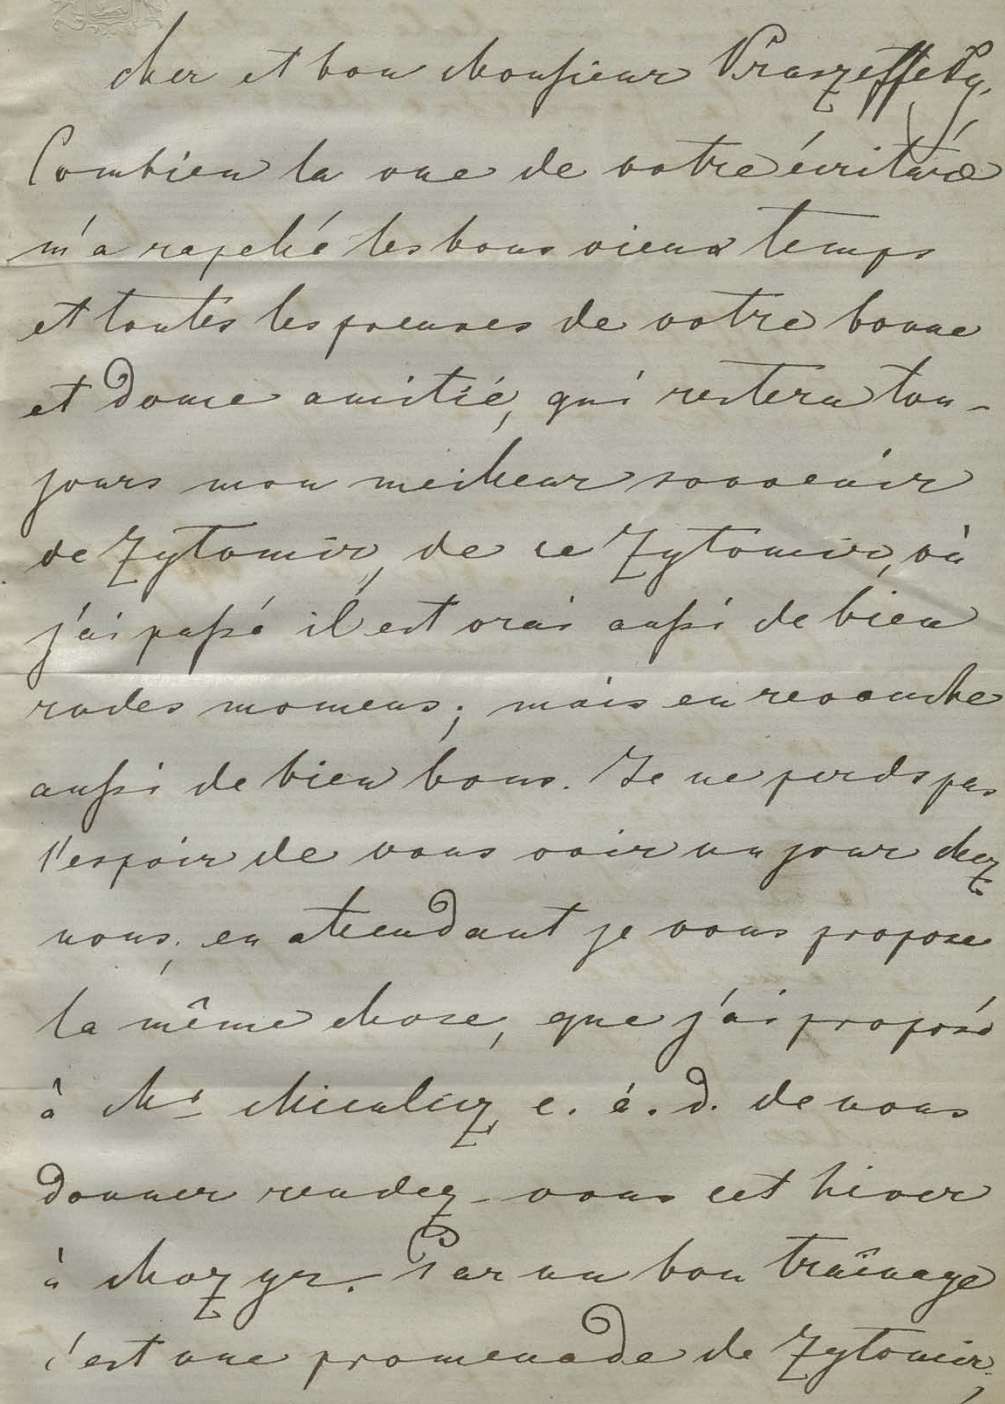 Cher et bon Monsieur Kraszeffsky,
Combien la vue de votre écriture
m'a rapelé les bons vieux temps
et toutes les preuves de votre bonne
et douce amitié, qui restera tou-
jours mon meilleur souvenir
de Zytomir, de ce Zytomir, où
j'ai passé il est vrai aussi de bien
rudes momens; mais en revanche
aussi de bien bons. Je ne perds pas
l'espoir de vous voir un jour chez
nous, en attendant je vous propose
la même chose, que j'ai proposé
à Mr c. à. d. de nous
donner rendez-vous cet hiver
à Mozyr. Par un bon traînage
c'est une promenade de Zytomir,